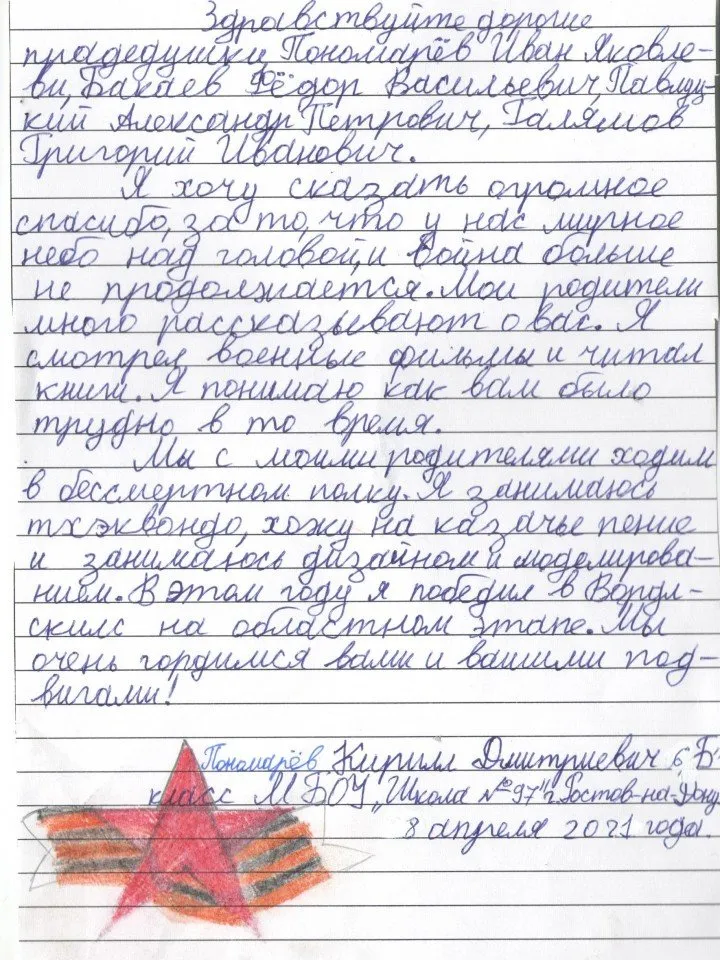 Здравствуйте дорогие
прадедушки, Пономарёв Иван Яковле-
ви, Бакаев Фёдор Васильевич, Павлуц-
кий Александр Петрович, Галямов
Григорий Иванович.
Я хочу сказать огромное
спасибо, за то, что у нас мирное
небо над головой, и война больше
не продолжается. Мои родители
много рассказывают о вас. Я
смотрел военные фильмы и читал
книги. Я понимаю как вам было
трудно в то время.
Мы с моими родителями ходим
в бессмертном полку. Я занимаюсь
тхэквондо, хожу на казачье пение
и занимаюсь дизайном и моделирова-
нием. В этом году я победил в Ворлд-
скилс на областном этапе. Мы
очень гордимся вами и вашими под-
вигами!
Пономарёв Кирилл Дмитриевич 6 „Б"
класс МБОУ „Школа №97" г. Ростов-на-Дону
8 апреля 2021 года.